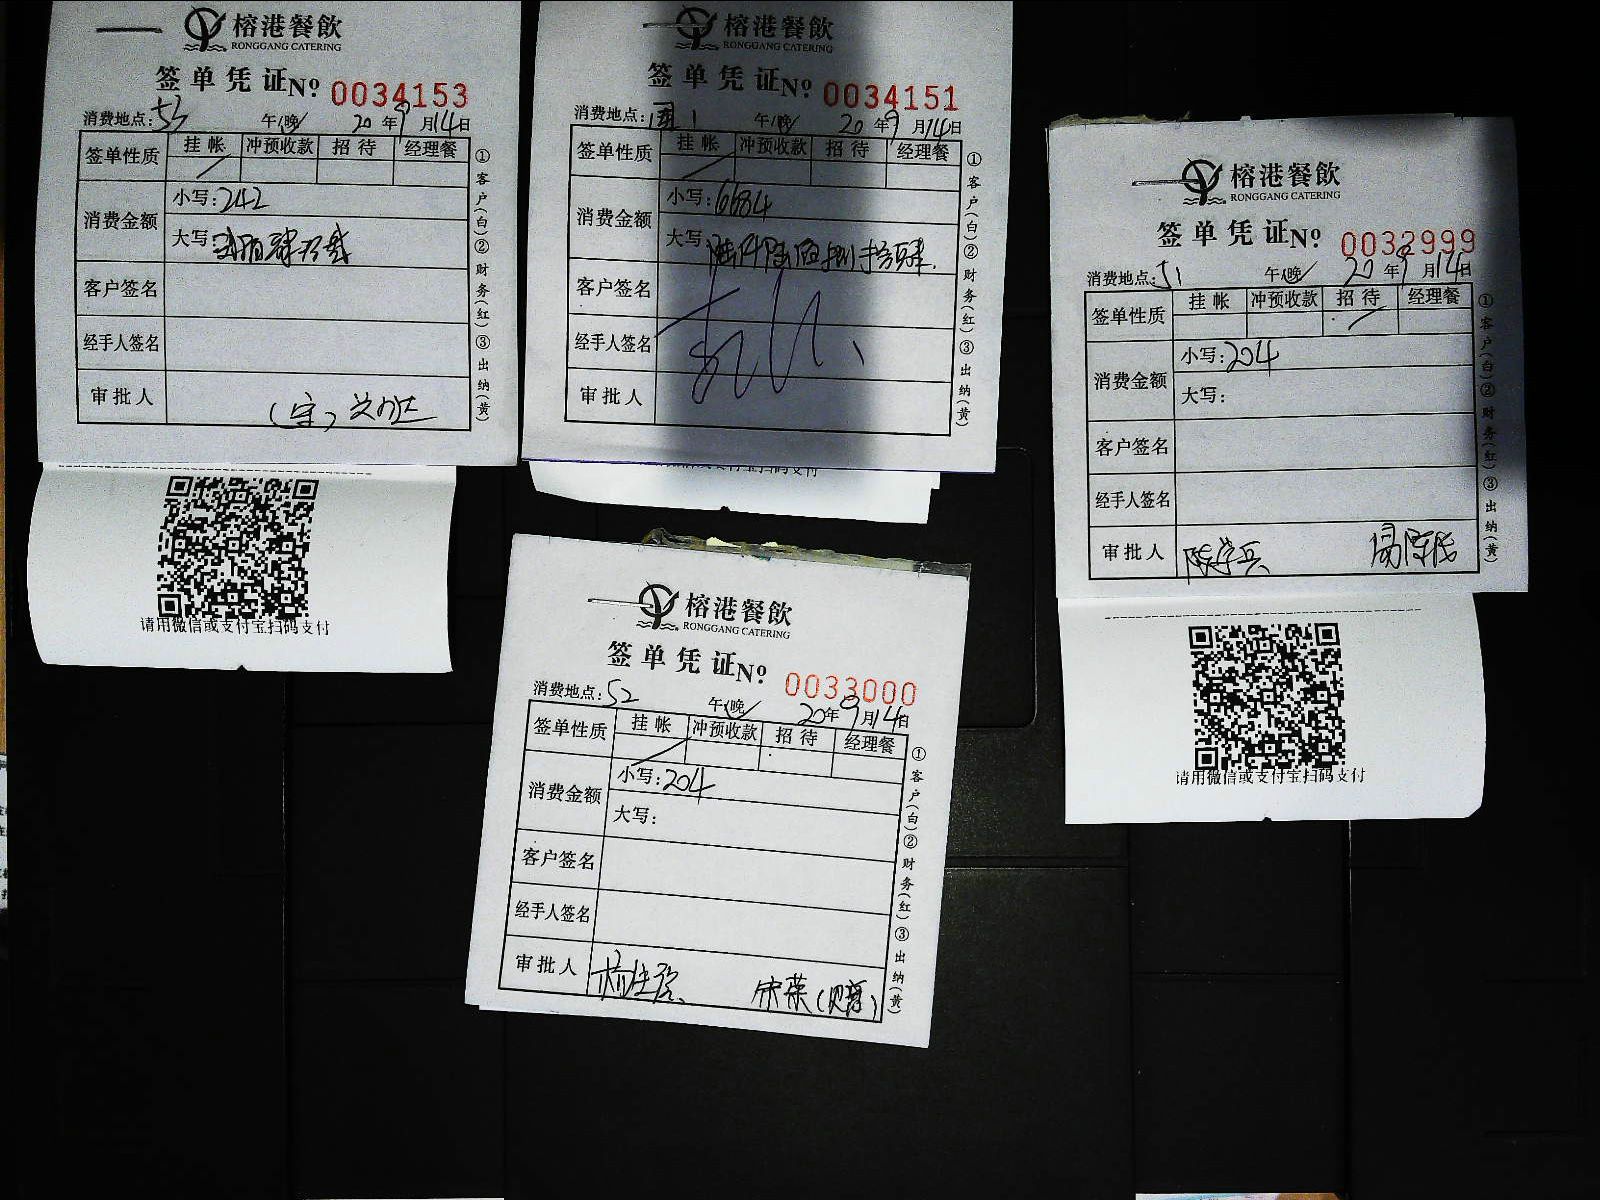 榕港餐飲
RONGGANG CATERING
签单凭证Nº 0034153
消费地点:53 午(晚) 20年9月14日
签单性质 挂帐 冲预收款 招待 经理餐
消费金额
小写:242
大写 贰佰肆拾贰
客户签名
经手人签名
审批人
①客户(白)②财务(红)③出纳(黄)
请用微信或支付宝扫码支付
榕港餐飲
RONGGANG CATERING
签单凭证Nº 0034151
消费地点: 1 午(晚) 20年9月14日
签单性质 挂帐 冲预收款 招待 经理餐
消费金额
小写:6684
大写 陆仟陆佰捌拾肆
客户签名
经手人签名
审批人
①客户(白)②财务(红)③出纳(黄)
扫码支付
榕港餐飲
RONGGANG CATERING
签单凭证Nº 0032999
消费地点:51 午(晚) 20年9月14日
签单性质 挂帐 冲预收款 招待 经理餐
消费金额
小写:204
大写:
客户签名
经手人签名
审批人 陈学兵
①客户(白)②财务(红)③出纳(黄)
请用微信或支付宝扫码支付
榕港餐飲
RONGGANG CATERING
签单凭证Nº 0033000
消费地点:52 午(晚) 20年9月14日
签单性质 挂帐 冲预收款 招待 经理餐
消费金额
小写:204
大写:
客户签名
经手人签名
审批人
①客户(白)②财务(红)③出纳(黄)